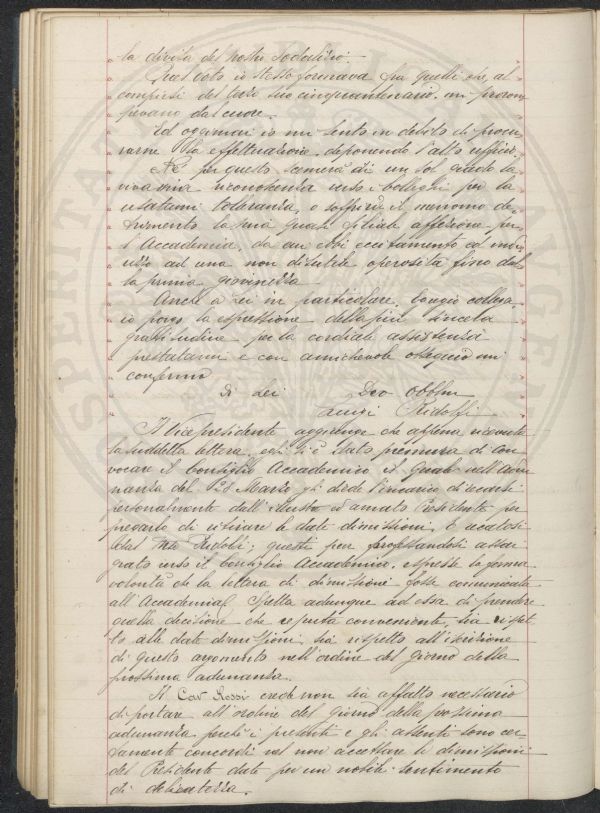 la divisa del nostro Sodalizio.
Quel voto io stesso formava fra quelli che, al
compirsi del suo cinquantenario, mi prorom
pevano dal cuore.
Ed oggimai io mi sento in debito di procu
rarne la effettuazione deponendo l'alto ufficio.
Nè per questo scemerà di un sol grado la
viva mia riconoscenza verso i colleghi per la
usatami tolleranza, o soffrirà il menomo de
trimento la mia quasi filiale affezione per
l'Accademia, da cui ebbi eccitamento ed indi
rizzo ad una non disutile operosità fino dal
la prima giovinezza
Anche a Lei in particolare, collega
io porgo la espressione della più sincera
gratitudine per la cordiale assistenza
prestatami e con amichevole ossequio mi
confermo
Di Lei Devo Obblmo
Luigi Ridolfi
Il Vicepresidente aggiunge che appena ricevuta
la suddetta lettera, egli si è dato premura di con
vocare il Consiglio Accademico il quale nell'adu
nanza del 28 Marzo gli diede l'incarico di recarsi
personalmente dall'illustre ed amato Presidente per
pregarlo di ritirare le date dimissioni. E recatosi
dal Ridolfi, questi pur professandosi assai
grato verso il Consiglio Accademico, espresse la ferma
volontà che la lettera di dimissione fosse comunicata
all'Accademia. Spetta adunque ad essa di prendere
quella decisione che reputa conveniente, sia rispet
to alle date dimissioni, sia rispetto all'iscrizione
di questo argomento nell'ordine del giorno della
prossima adunanza.
Il Cav Rossi crede non sia affatto necessario
di portare all'ordine del giorno della prossima
adunanza perchè i presenti e gli assenti sono cer
tamente concordi nel non accettare le dimissioni
del Presidente date per un nobile sentimento
di delicatezza.